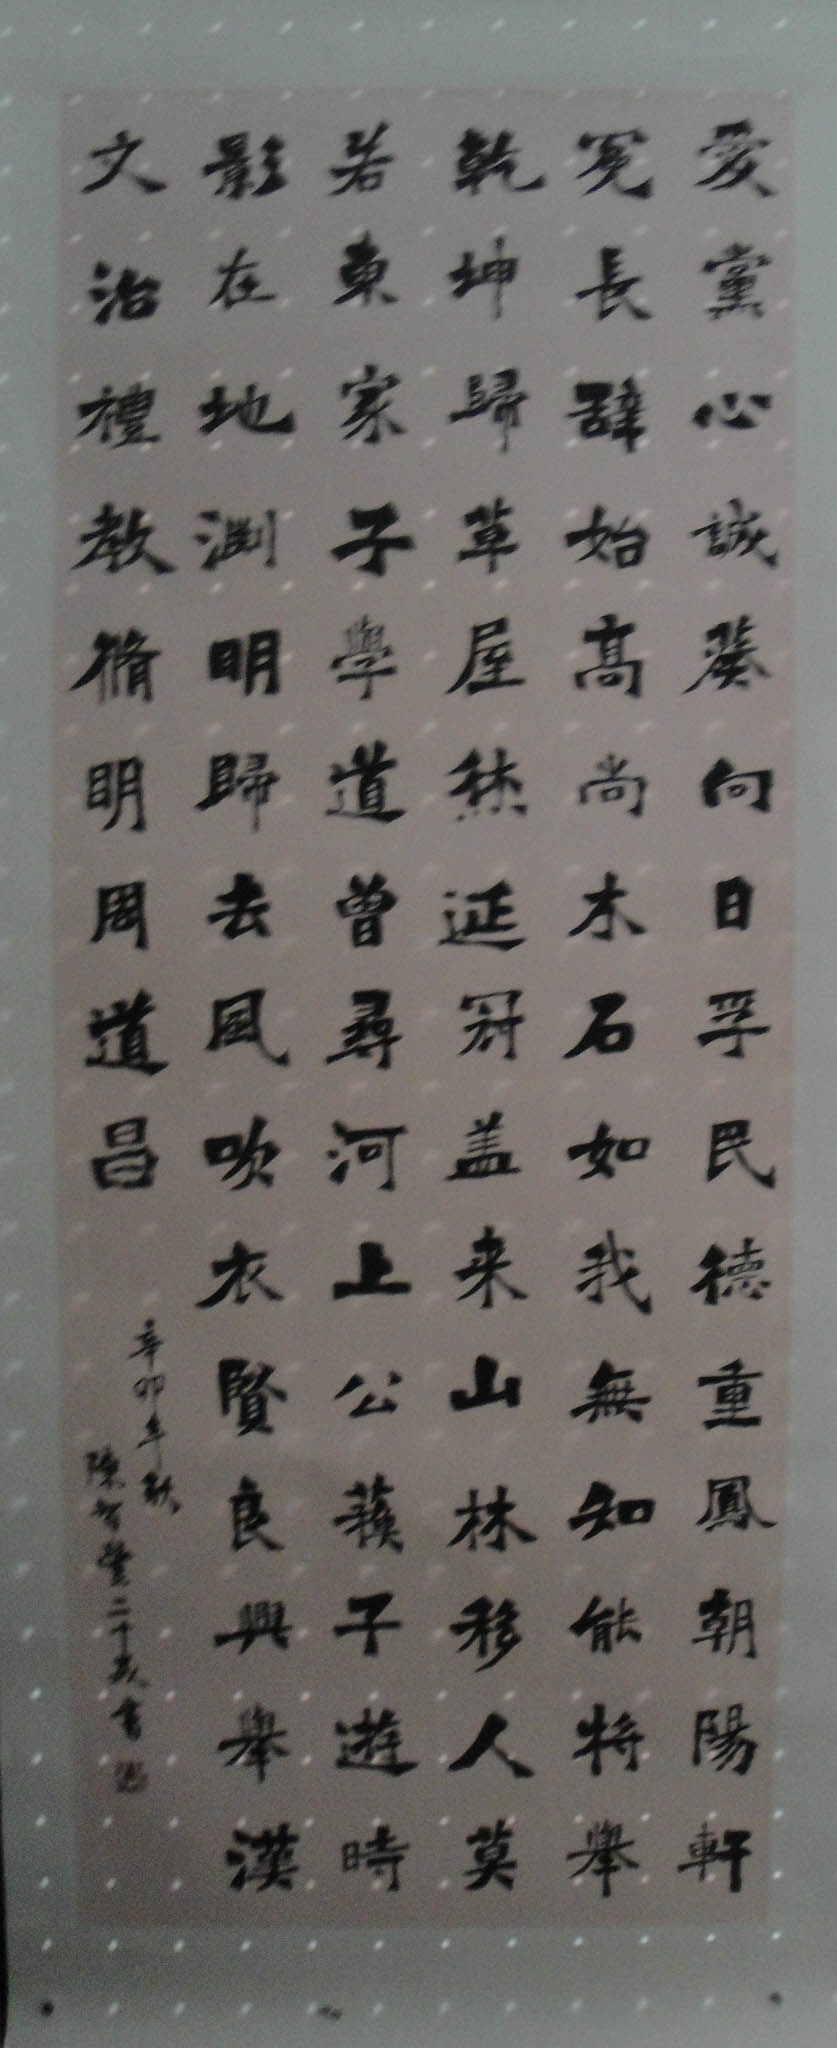 愛黨心誠葵向日孚民德重鳳朝陽軒
冕長辭始高尚木石如我無知能將舉
乾坤歸草屋然延冠盖来山林移人莫
若東家子學道曾尋河上公蓀子遊時
影在地渊明歸去風吹衣賢良興舉漢
文治禮教脩明周道昌
辛卯年秋
陳智瑩二十歲書